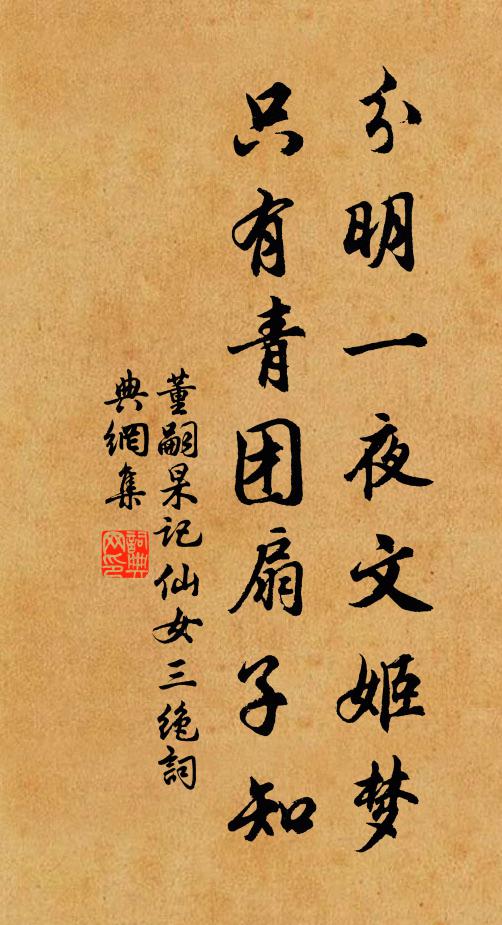 分明一夜文姬梦
只有青团扇子知
董嗣杲记仙女三绝词
典網集
詞典网印